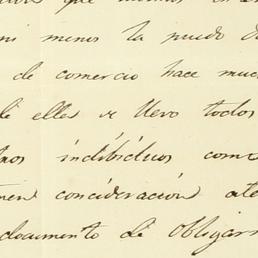 que
ni menos la puedo
de comercio hace
de elles se llevo todos
indibiduos
concideración
documento de obligar